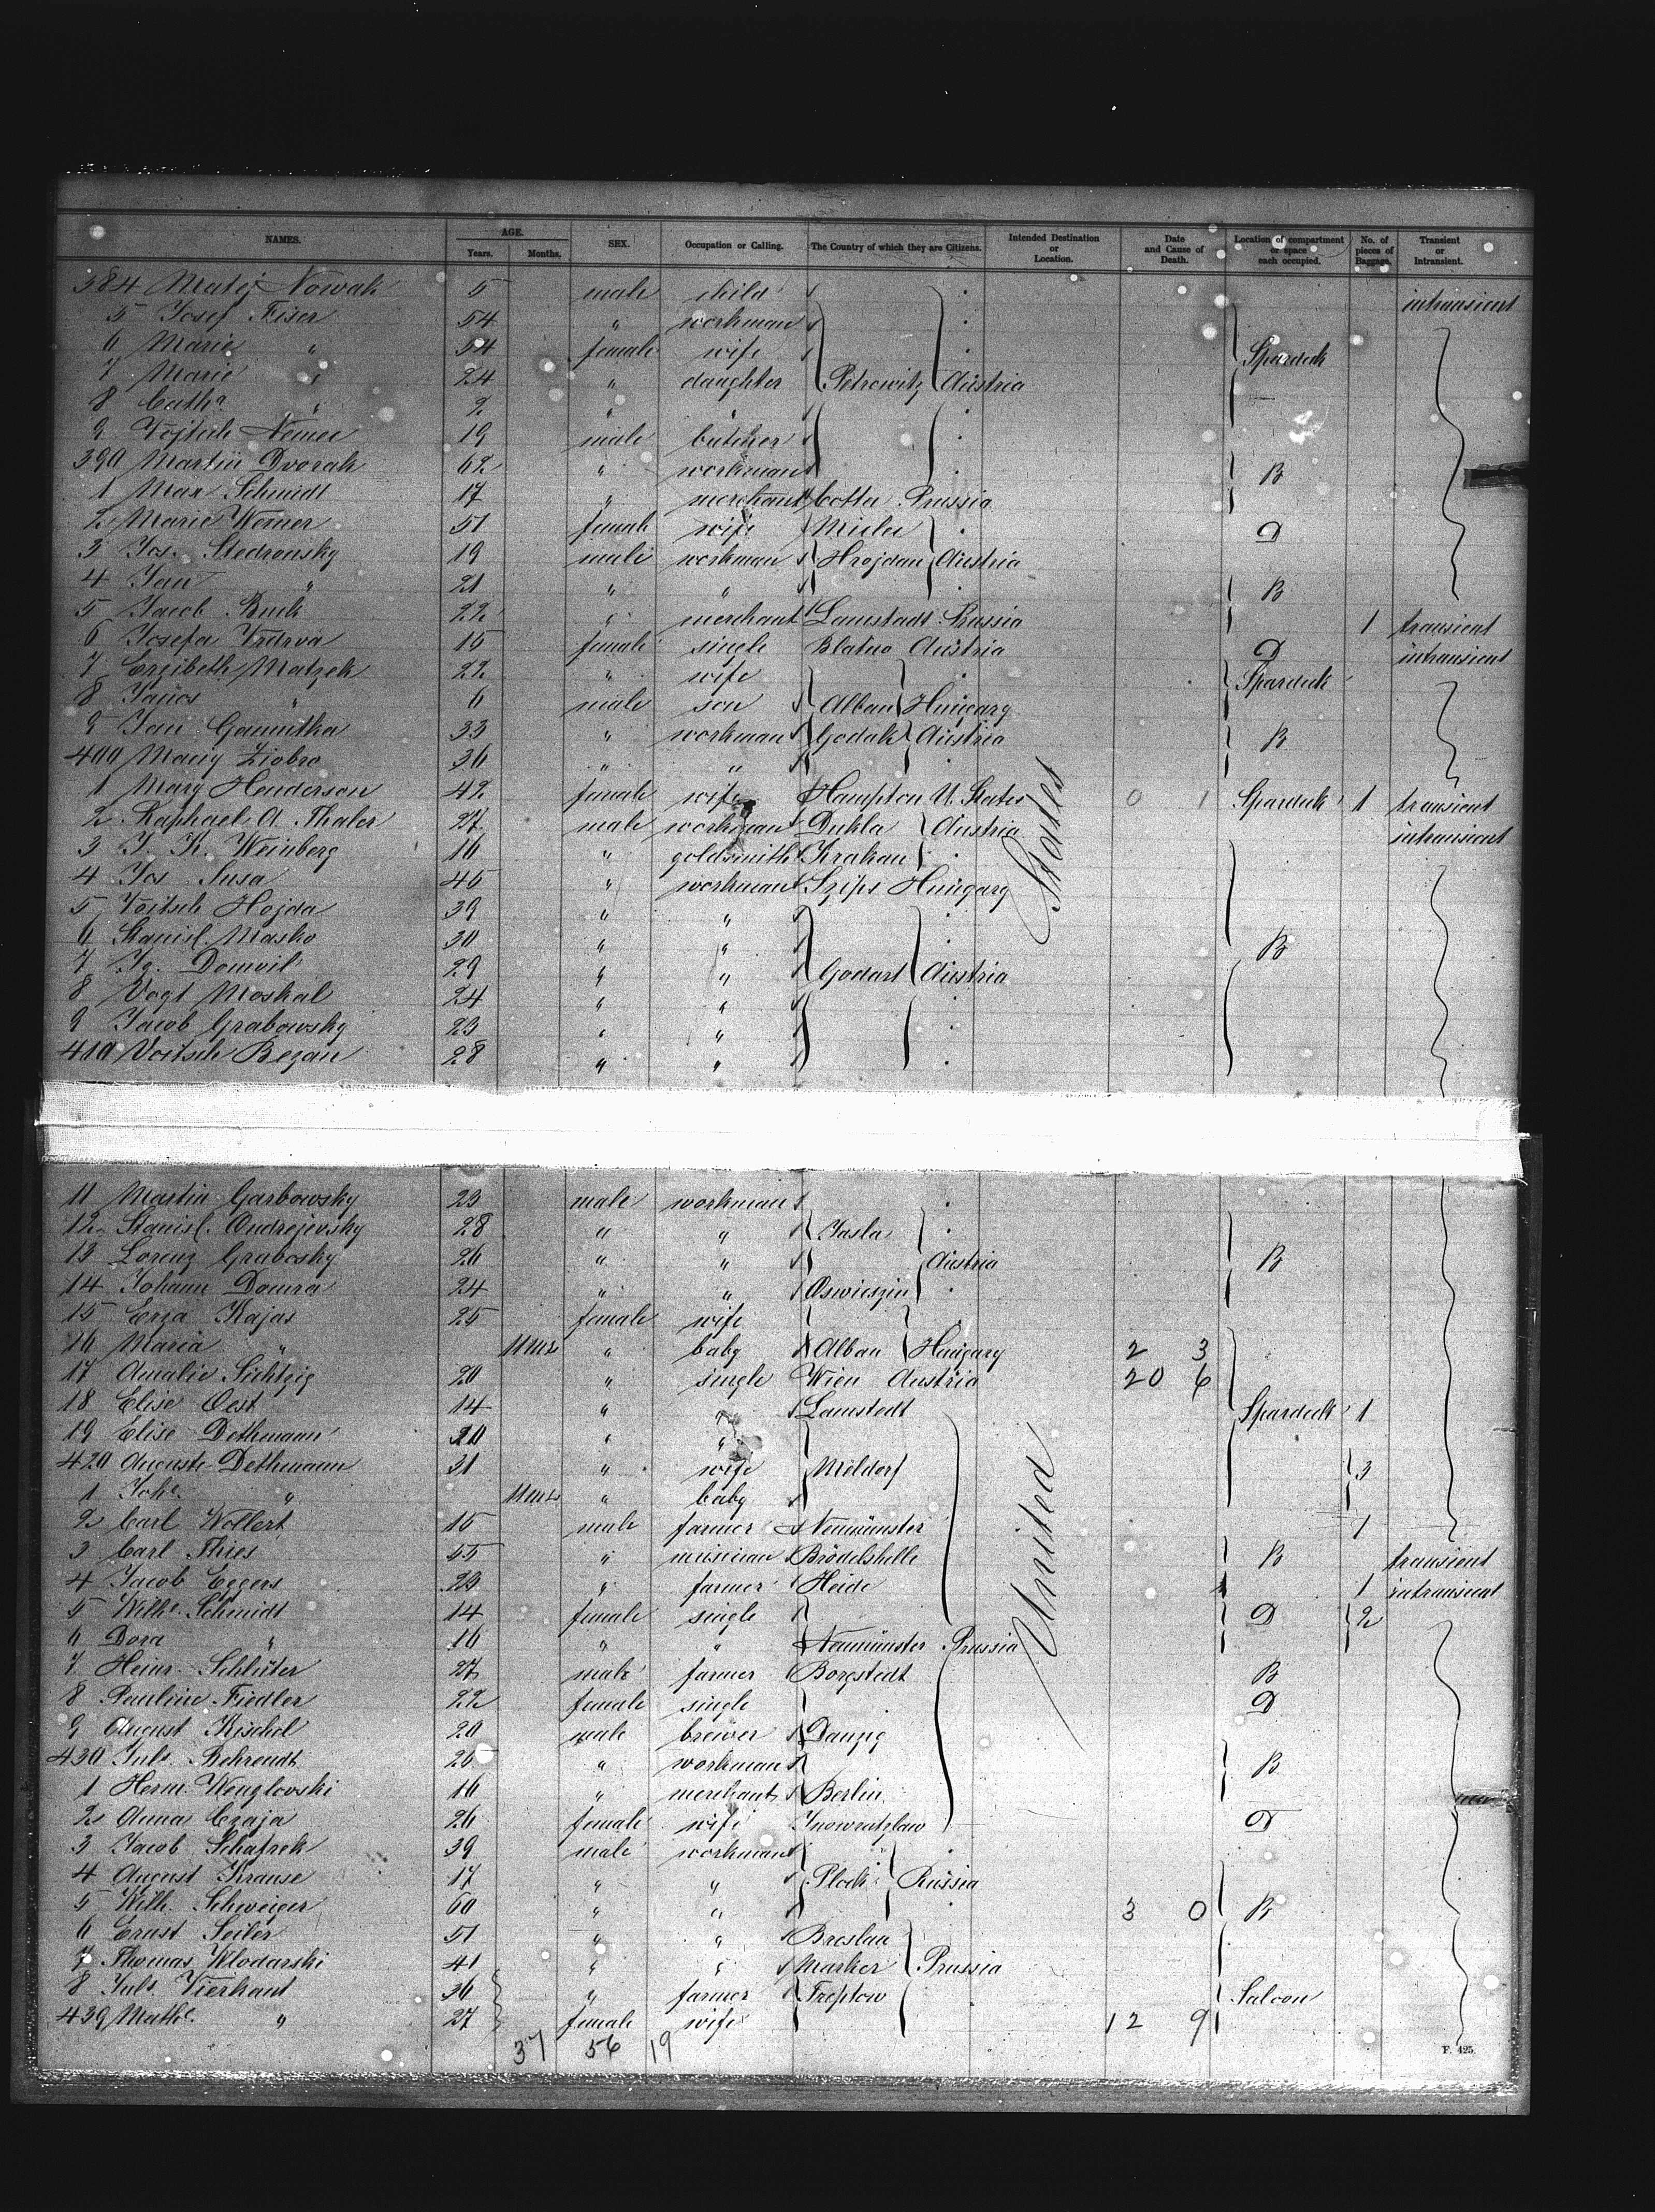 NAMES. AGE. Years. Months. SEX. Occupation or Calling. The Country of which they are Citizens. Intended Destination or Location. Date and Cause of Death. Location of compartment or space each occupied. No. of pieces of Baggage. Transient or Intransient.
384 Matej Nowak 5 male child intransient
5 Josef Fiser 54 " workman
6 Marie " 54 female wife Spardeck
7 Marie " 24 " daughter Petrowitz Austria
8 Cath. " " "
9 Vojtech Nemec 19 male butcher
390 Martin Dvorak 62 " workman B
1 Max Schmidt 17 " merchant Cotta Prussia
2 Marie Werner 51 female wife D
3 Jos. Stedronsky 19 male workman Hrojdan Austria
4 Jan " 21 " " B
5 Jacob Buck 22 " merchant Lamstadt Prussia 1 transient
6 Josefa 15 female single Blatno Austria D intransient
7 Erzibeth Matzek 22 " wife Spardeck
8 Janos " 6 male son Alban Hungary
9 Jan 33 " workman Godak Austria B
400 Maciy Ziobro 36 " "
1 Mary Henderson 42 female wife Hampton U. States 0 1 Spardeck 1 transient
2 Raphael A. Thaler 27 male workman Dukla Austria intransient
3 J. K. Weinberg 16 " goldsmith Krakau
4 Jos Susa 45 " workman Szips Hungary
5 Voitsch Hojda 39 " "
6 Stanisl. Masko 30 " " B
7 Domvil 29 " " Godart Austria
8 Vogt Moskal 24 " "
9 Jacob Grabowsky 23 " "
410 Voitsch Bezan 28 " "
11 Martin Garbowsky 23 male workman
12 Stanisl. Andrejevsky 28 " " Jasla
13 Lorenz Grabosky 26 " " Austria B
14 Johann Domra 24 " " Oswieszin
15 Erza Kajas 25 female wife
16 Maria " 11 mos " baby Alban Hungary 2 3
17 Amalie Sichtzig 20 " single Wien Austria 20 6
18 Elise Oest 14 " " Lamstedt Spardeck 1
19 Elise Dethmann 20 " "
420 Auguste Dethmann 31 " wife Meldorf 3
1 Joh. " 11 mos " baby
2 Carl Wollert 15 male farmer Neumünster 1
3 Carl Thies 55 " musician B transient
4 Jacob Eggers 23 " farmer Heide 1 intransient
5 Wilh. Schmidt 14 female single D 2
6 Dora " 16 " " Neumünster Prussia
7 Heinr. Schlüter 27 male farmer Borgstedt B
8 Pauline Fiedler 22 female single D
9 August Kischel 20 male brewer Danzig
430 Juls. Behrendt 25 " workman B
1 Herm. Wenglovski 16 " merchant Berlin
2 Anna Czaja 26 female wife Inowratzlaw D
3 Jacob Schafrek 39 male workman
4 August Krause 17 " " Plock Russia
5 Wilh. Schweiger 60 " " 3 0 B
6 Ernst Seiler 51 " " Breslau
7 Thomas Wlodarski 41 " " Marker Prussia
8 Juls. Vierhaut 36 " farmer Treptow Saloon
439 Math. " 27 female wife 12 9
United States
37 56 19
F. 425.